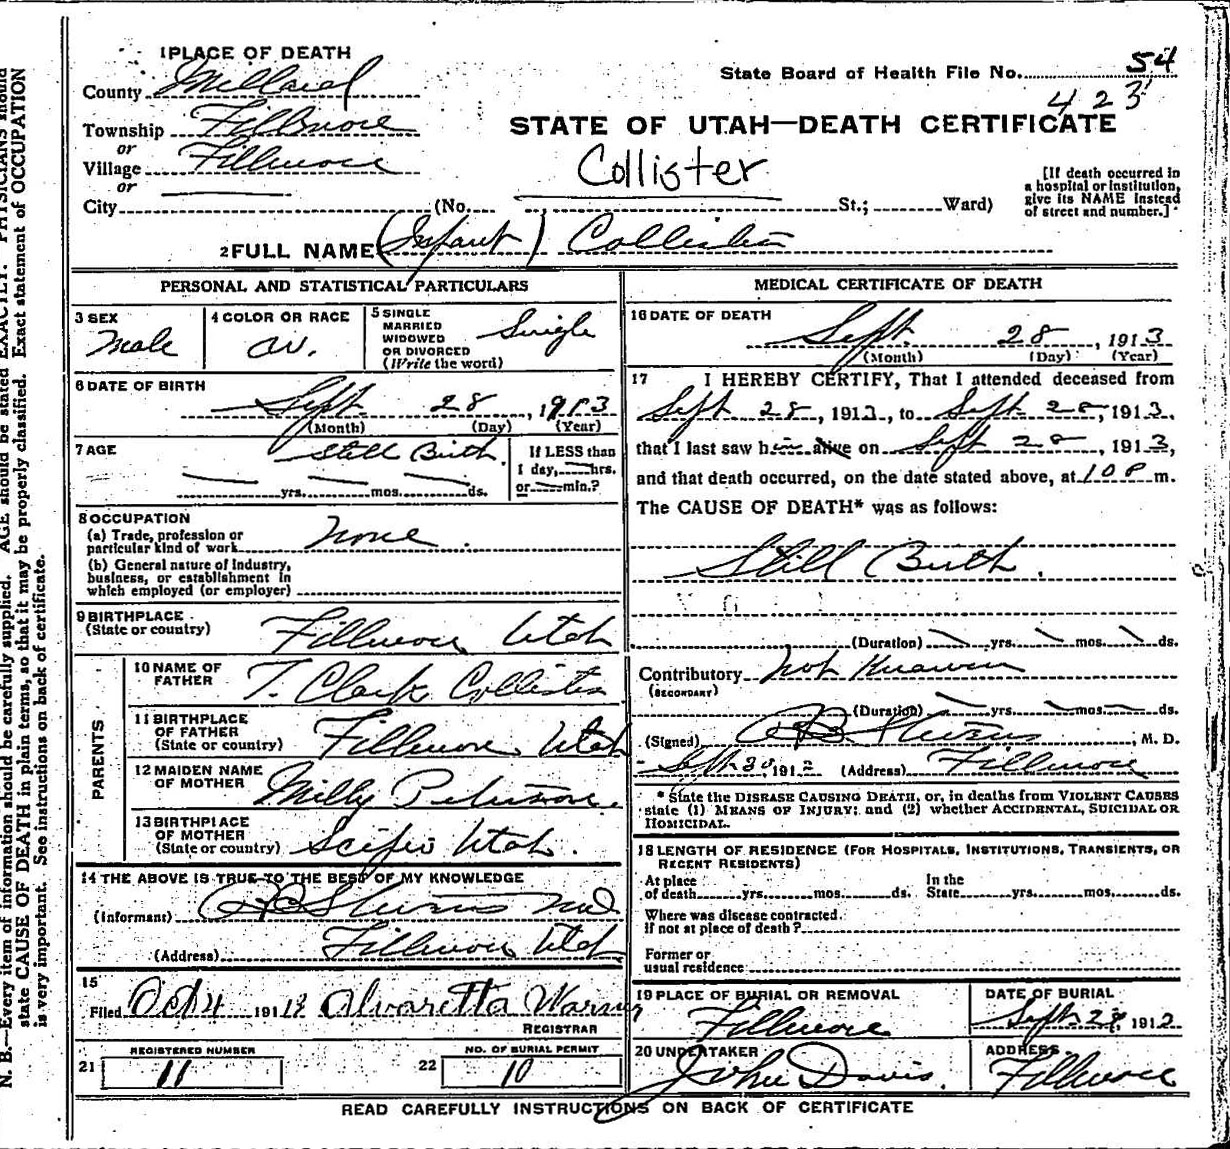 1 PLACE OF DEATH
State Board of Health File No. 54
423
County Millard
Township Fillmore
or
Village Fillmore
or
City (No. St.; Ward)
STATE OF UTAH—DEATH CERTIFICATE
Collister
[If death occurred in
a hospital or institution,
give its NAME instead
of street and number.]
2 FULL NAME (Infant) Collister
PERSONAL AND STATISTICAL PARTICULARS
3 SEX
Male
4 COLOR OR RACE
W.
5 SINGLE
MARRIED
WIDOWED
OR DIVORCED
(Write the word)
Single
6 DATE OF BIRTH
Sept. 28, 1913
(Month) (Day) (Year)
7 AGE
Still Birth
yrs. mos. ds.
If LESS than
1 day, hrs.
or min.?
8 OCCUPATION
(a) Trade, profession or
particular kind of work none
(b) General nature of industry,
business, or establishment in
which employed (or employer)
9 BIRTHPLACE
(State or country) Fillmore Utah
PARENTS
10 NAME OF
FATHER T. Clark Collister
11 BIRTHPLACE
OF FATHER
(State or country) Fillmore Utah
12 MAIDEN NAME
OF MOTHER Milly Peterson
13 BIRTHPLACE
OF MOTHER
(State or country) Scipio Utah.
14 THE ABOVE IS TRUE TO THE BEST OF MY KNOWLEDGE
(Informant) Stevens MD
(Address) Fillmore Utah
15
Filed Oct 4 1913 Alvaretta Warner
REGISTRAR
21 REGISTERED NUMBER
11
22 NO. OF BURIAL PERMIT
10
MEDICAL CERTIFICATE OF DEATH
16 DATE OF DEATH
Sept. 28, 1913
(Month) (Day) (Year)
17 I HEREBY CERTIFY, That I attended deceased from
Sept 28, 1913, to Sept 28, 1913,
that I last saw him alive on Sept 28, 1913,
and that death occurred, on the date stated above, at 10 P m.
The CAUSE OF DEATH* was as follows:
Still Birth.
(Duration) yrs. mos. ds.
Contributory not Known
(SECONDARY)
(Duration) yrs. mos. ds.
(Signed) Stevens, M. D.
Sept 30, 191 (Address) Fillmore
* State the DISEASE CAUSING DEATH, or, in deaths from VIOLENT CAUSES
state (1) MEANS OF INJURY; and (2) whether ACCIDENTAL, SUICIDAL OR
HOMICIDAL.
18 LENGTH OF RESIDENCE (FOR HOSPITALS, INSTITUTIONS, TRANSIENTS, OR
RECENT RESIDENTS)
At place
of death yrs. mos. ds.
In the
State yrs. mos. ds.
Where was disease contracted.
If not at place of death?
Former or
usual residence
19 PLACE OF BURIAL OR REMOVAL
Fillmore
DATE OF BURIAL
Sept. 191
20 UNDERTAKER
John Davis.
ADDRESS
Fillmore
READ CAREFULLY INSTRUCTIONS ON BACK OF CERTIFICATE
N. B.—Every item of information should be carefully supplied. AGE should be stated EXACTLY. PHYSICIANS should
state CAUSE OF DEATH in plain terms, so that it may be properly classified. Exact statement of OCCUPATION
is very important. See instructions on back of certificate.